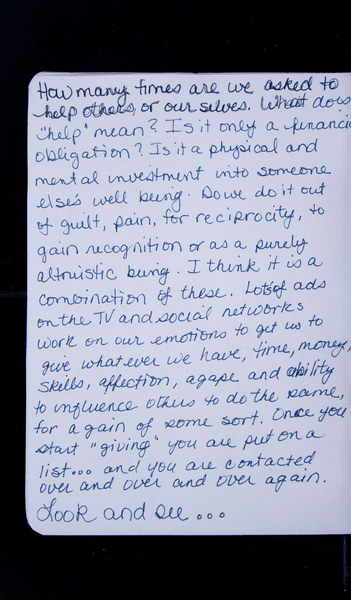 How many times are we asked to
help others, or our selves. What does
"help" mean? Is it only a financi
obligation? Is it a physical and
mental investment into someone
else's well being. Do we do it out
of guilt, pain, for reciprocity, to
gain recognition or as a purely
altruistic being. I think it is a
combination of these. Lots of ads
on the TV and social networks
work on our emotions to get us to
give what ever we have, time, money,
skills, affection, agape and ability
to influence others to do the same,
for a gain of some sort. Once you
start "giving" you are put on a
list... and you are contacted
over and over and over again.
Look and see...